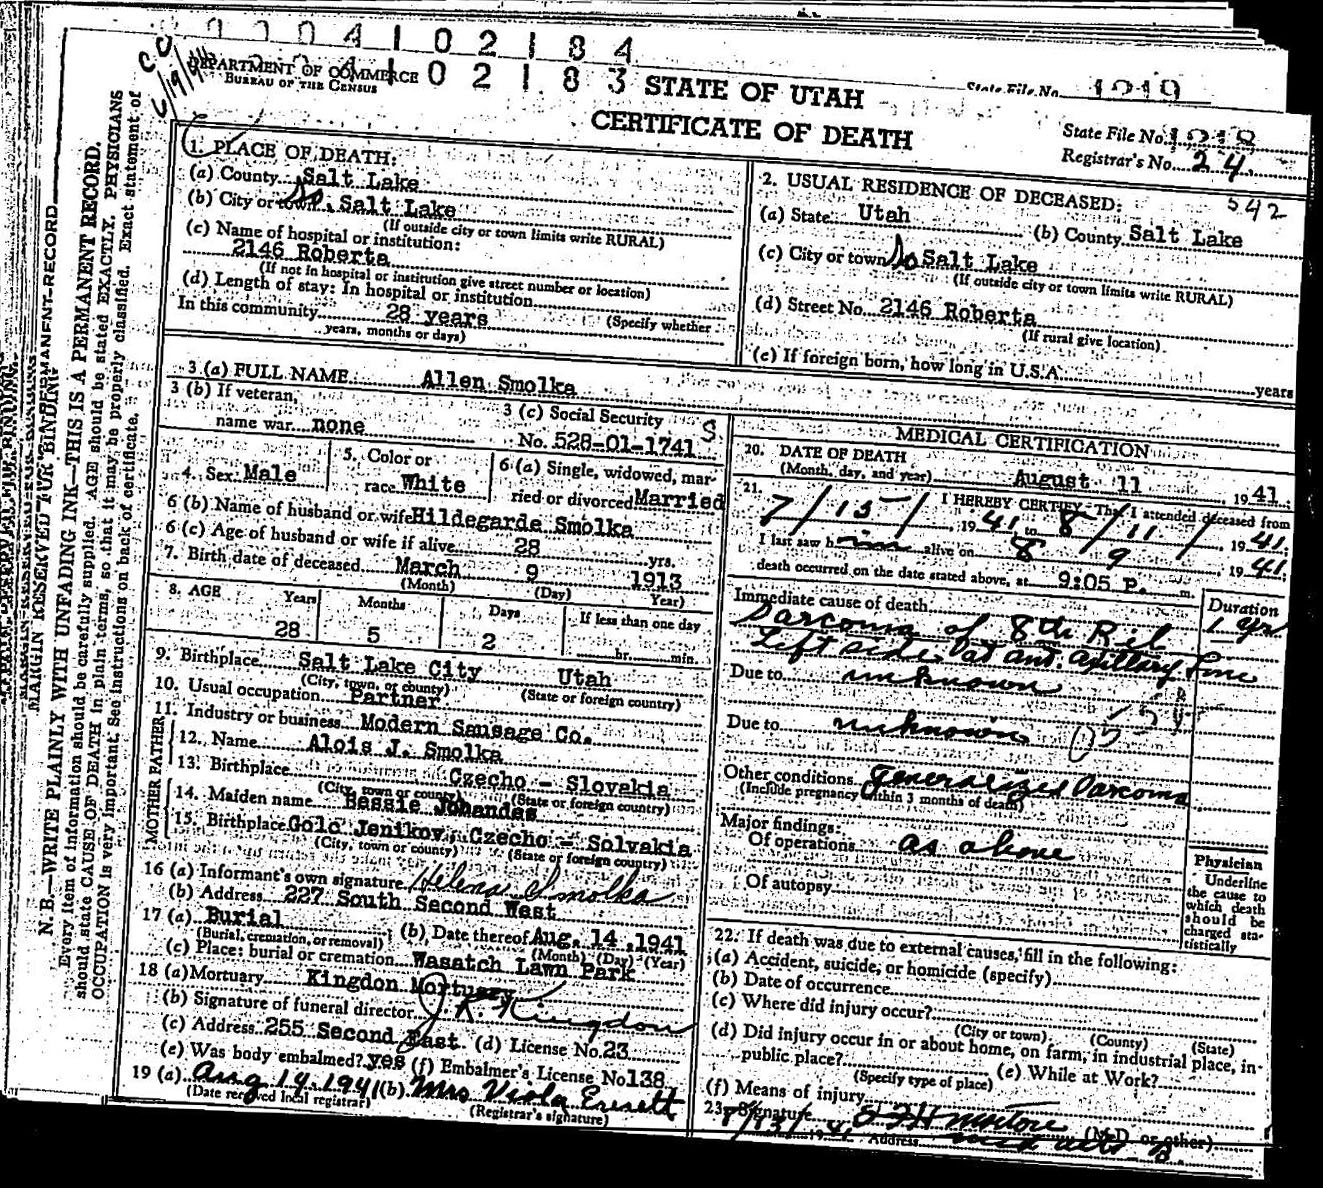 0 0 0 4 1 0 2 1 8 4
DEPARTMENT OF COMMERCE
BUREAU OF THE CENSUS
0 2 1 8 3
STATE OF UTAH
CERTIFICATE OF DEATH
State File No. 1219
State File No. 1218
Registrar's No. 24.
N. B.—WRITE PLAINLY WITH UNFADING INK—THIS IS A PERMANENT RECORD.
Every item of information should be carefully supplied. AGE should be stated EXACTLY. PHYSICIANS
should state CAUSE OF DEATH in plain terms, so that it may be properly classified. Exact statement of
OCCUPATION is very important. See instructions on back of certificate.
1. PLACE OF DEATH:
(a) County Salt Lake
(b) City or town So. Salt Lake
(If outside city or town limits write RURAL)
(c) Name of hospital or institution:
2146 Roberta
(If not in hospital or institution give street number or location)
(d) Length of stay: In hospital or institution
In this community 28 years (Specify whether
years, months or days)
2. USUAL RESIDENCE OF DECEASED: 542
(a) State Utah (b) County Salt Lake
(c) City or town So Salt Lake
(If outside city or town limits write RURAL)
(d) Street No. 2146 Roberta
(If rural give location)
(e) If foreign born, how long in U.S.A. years
3 (a) FULL NAME Allen Smolka
3 (b) If veteran,
name war none
3 (c) Social Security
No. 528-01-1741 S
4. Sex Male
5. Color or
race White
6 (a) Single, widowed, mar-
ried or divorced Married
6 (b) Name of husband or wife Hildegarde Smolka
6 (c) Age of husband or wife if alive 28 yrs.
7. Birth date of deceased March 9 1913
(Month) (Day) Year)
8. AGE Years Months Days If less than one day
28 5 2 hr. min.
9. Birthplace Salt Lake City Utah
(City, town, or county) (State or foreign country)
10. Usual occupation Partner
11. Industry or business Modern Sausage Co.
FATHER
12. Name Alois J. Smolka
13. Birthplace Czecho - Slovakia
(City, town or county) (State or foreign country)
MOTHER
14. Maiden name Bessie Johandes
15. Birthplace Golc Jenikov, Czecho - Solvakia
(City, town or county) (State or foreign country)
16 (a) Informant's own signature Helena Smolka
(b) Address 227 South Second West
17 (a) Burial (b) Date thereof Aug. 14, 1941
(Burial, cremation, or removal) (Month) (Day) (Year)
(c) Place: burial or cremation Wasatch Lawn Park
18 (a) Mortuary Kingdon Mortuary
(b) Signature of funeral director J. K. Kingdon
(c) Address 255 Second East (d) License No. 23
(e) Was body embalmed? yes (f) Embalmer's License No. 138
19 (a) Aug 14. 1941 (b) Mrs Viola
(Date received local registrar) (Registrar's signature)
MEDICAL CERTIFICATION
20. DATE OF DEATH
(Month, day, and year) August 11, 1941.
21. I HEREBY CERTIFY, That I attended deceased from
7/15/, 1941 to 8/11/, 1941.
I last saw him alive on 8 9, 1941.
death occurred on the date stated above, at 9:05 P. m.
Immediate cause of death Duration
Sarcoma of 8th Rib 1 yr
Left side at ant. axillary line
Due to unknown
Due to unknown 055
Other conditions generalized sarcoma
(Include pregnancy within 3 months of death)
Major findings:
Of operations as above
Of autopsy
Physician
Underline
the cause to
which death
should be
charged sta-
tistically
22. If death was due to external causes, fill in the following:
(a) Accident, suicide, or homicide (specify)
(b) Date of occurrence
(c) Where did injury occur?
(City or town) (County) (State)
(d) Did injury occur in or about home, on farm, in industrial place, in
public place? (e) While at Work?
(Specify type of place)
(f) Means of injury
23. Signature (M.D. or other)
8/13/1941 Address